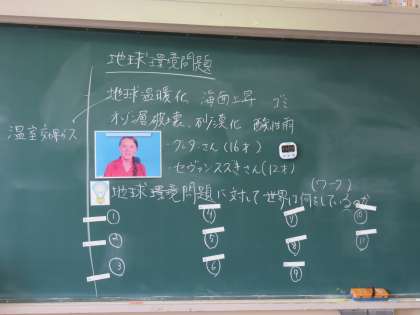 地球環境問題
地球温暖化 海面上昇 ゴミ
温室効果ガス
オゾン層破壊、砂漠化 酸性雨
・グレタさん(16才)
・セヴァンスズキさん(12才)
(ワーク)
地球環境問題に対して世界は何をしているのか
① ④ ⑦ ⑩
② ⑤ ⑧ ⑪
③ ⑥ ⑨